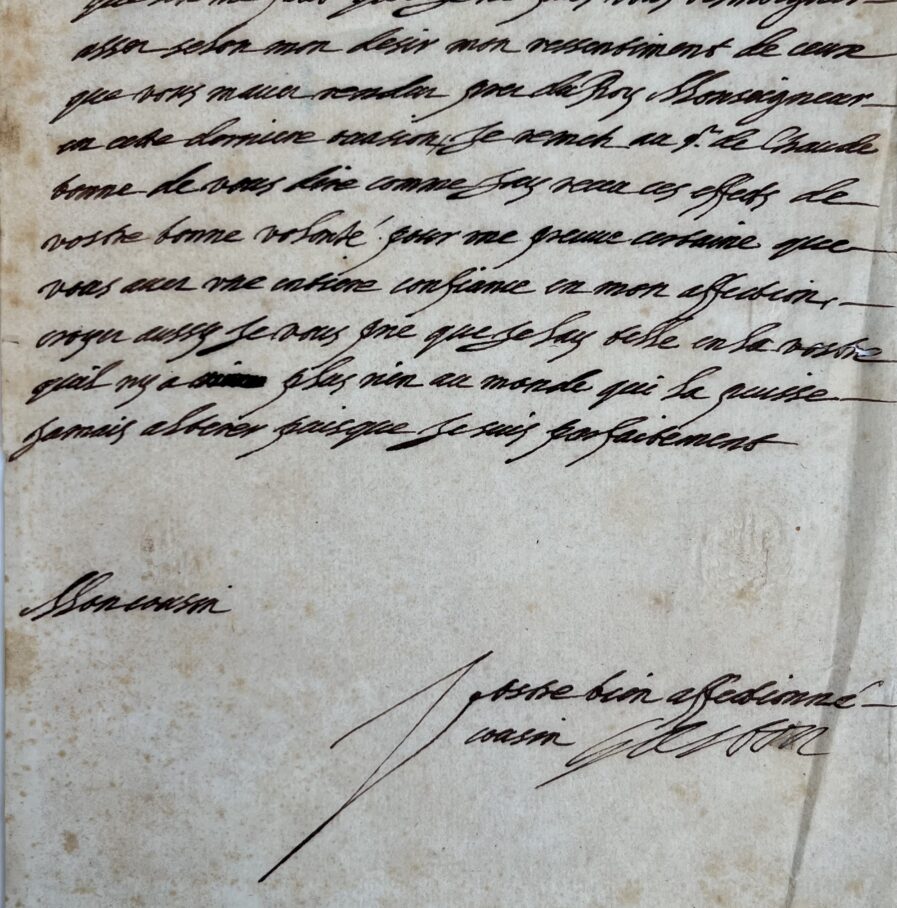 que je ne puis vous tesmoigner
asser selon mon desir mon ressentiment de ceux
que vous mauer rendu pres du Roy Monseigneur
en cette derniere ocasion, Je remets au sr. de Chaude
bonne de vous dire comme Jay receu ces effects de
vostre bonne volonté pour une preuue certaine que
vous auer vne entiere confiance en mon affection,
croyer aussy Je vous prie que Je lay telle en la vostre
quil ny a plus rien au monde qui la puisse
Jamais alterer puisque Je suis parfaitement
Mon cousin
Vostre bien affectionné
cousin Gaston